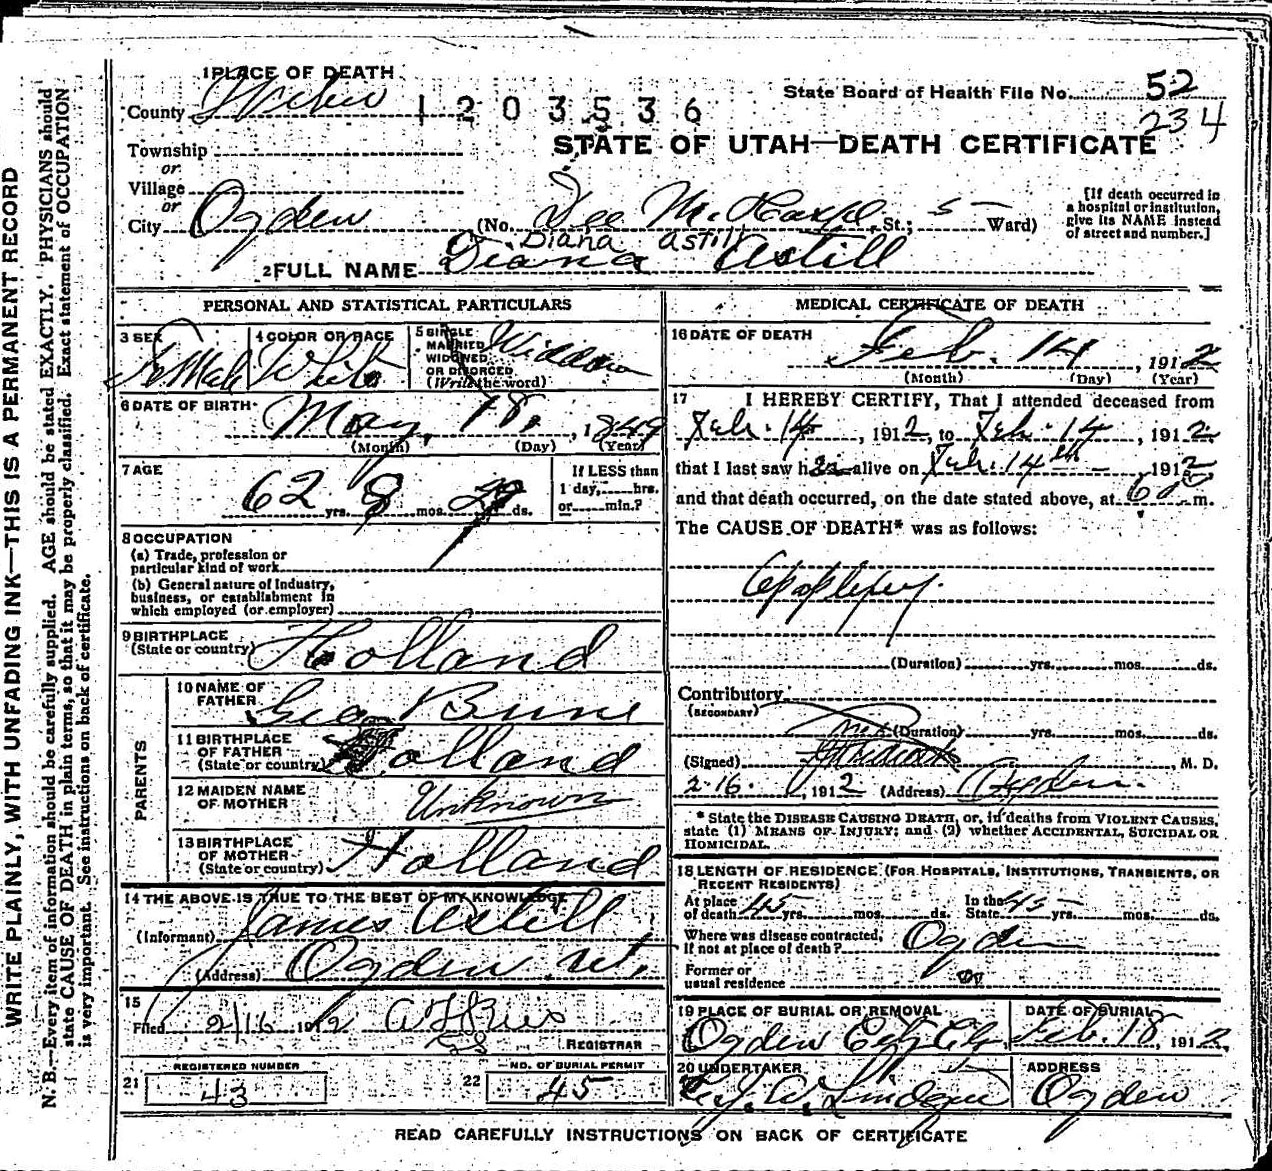 WRITE PLAINLY, WITH UNFADING INK—THIS IS A PERMANENT RECORD
N. B.—Every item of information should be carefully supplied. AGE should be stated EXACTLY. PHYSICIANS should
state CAUSE OF DEATH in plain terms, so that it may be properly classified. Exact statement of OCCUPATION
is very important. See instructions on back of certificate.
1 PLACE OF DEATH
County Weber
1203536
State Board of Health File No. 52
234
STATE OF UTAH—DEATH CERTIFICATE
Township
or
Village
or
City Ogden
(No. Dee St.; 5 Ward)
[If death occurred in
a hospital or institution,
give its NAME instead
of street and number.]
Diana Astill
2 FULL NAME Diana Astill
PERSONAL AND STATISTICAL PARTICULARS
3 SEX
Female
4 COLOR OR RACE
White
5 SINGLE
MARRIED
WIDOWED
OR DIVORCED
(Write the word)
Widdow
6 DATE OF BIRTH
May, 18, 1849
(Month) (Day) (Year)
7 AGE
62 yrs. 8 mos. 29 ds.
If LESS than
1 day, hrs.
or min.?
8 OCCUPATION
(a) Trade, profession or
particular kind of work
(b) General nature of Industry,
business, or establishment in
which employed (or employer)
9 BIRTHPLACE
(State or country) Holland
PARENTS
10 NAME OF
FATHER Geo
11 BIRTHPLACE
OF FATHER
(State or country) Holland
12 MAIDEN NAME
OF MOTHER Unknown
13 BIRTHPLACE
OF MOTHER
(State or country) Holland
14 THE ABOVE IS TRUE TO THE BEST OF MY KNOWLEDGE
(Informant) James Astill
(Address) Ogden Ut.
15
Filed 2/16 1912
REGISTRAR
REGISTERED NUMBER
21 43
NO. OF BURIAL PERMIT
22 45
MEDICAL CERTIFICATE OF DEATH
16 DATE OF DEATH
Feb. 14, 1912
(Month) (Day) (Year)
17 I HEREBY CERTIFY, That I attended deceased from
Feb. 14, 1912, to Feb. 14, 1912
that I last saw her alive on Feb. 14th, 1912
and that death occurred, on the date stated above, at 6 00 m.
The CAUSE OF DEATH* was as follows:
Apoplexy.
(Duration) yrs. mos. ds.
Contributory
(SECONDARY)
(Duration) yrs. mos. ds.
(Signed) , M. D.
2-16. , 1912 (Address) Ogden.
* State the DISEASE CAUSING DEATH, or, in deaths from VIOLENT CAUSES,
state (1) MEANS OF INJURY; and (2) whether ACCIDENTAL, SUICIDAL OR
HOMICIDAL.
18 LENGTH OF RESIDENCE (FOR HOSPITALS, INSTITUTIONS, TRANSIENTS, OR
RECENT RESIDENTS)
At place
of death 45 yrs. mos. ds.
In the
State 45 yrs. mos. ds.
Where was disease contracted,
if not at place of death? Ogden
Former or
usual residence
19 PLACE OF BURIAL OR REMOVAL
Ogden City
DATE OF BURIAL
Feb. 18, 1912
20 UNDERTAKER
ADDRESS
Ogden
READ CAREFULLY INSTRUCTIONS ON BACK OF CERTIFICATE